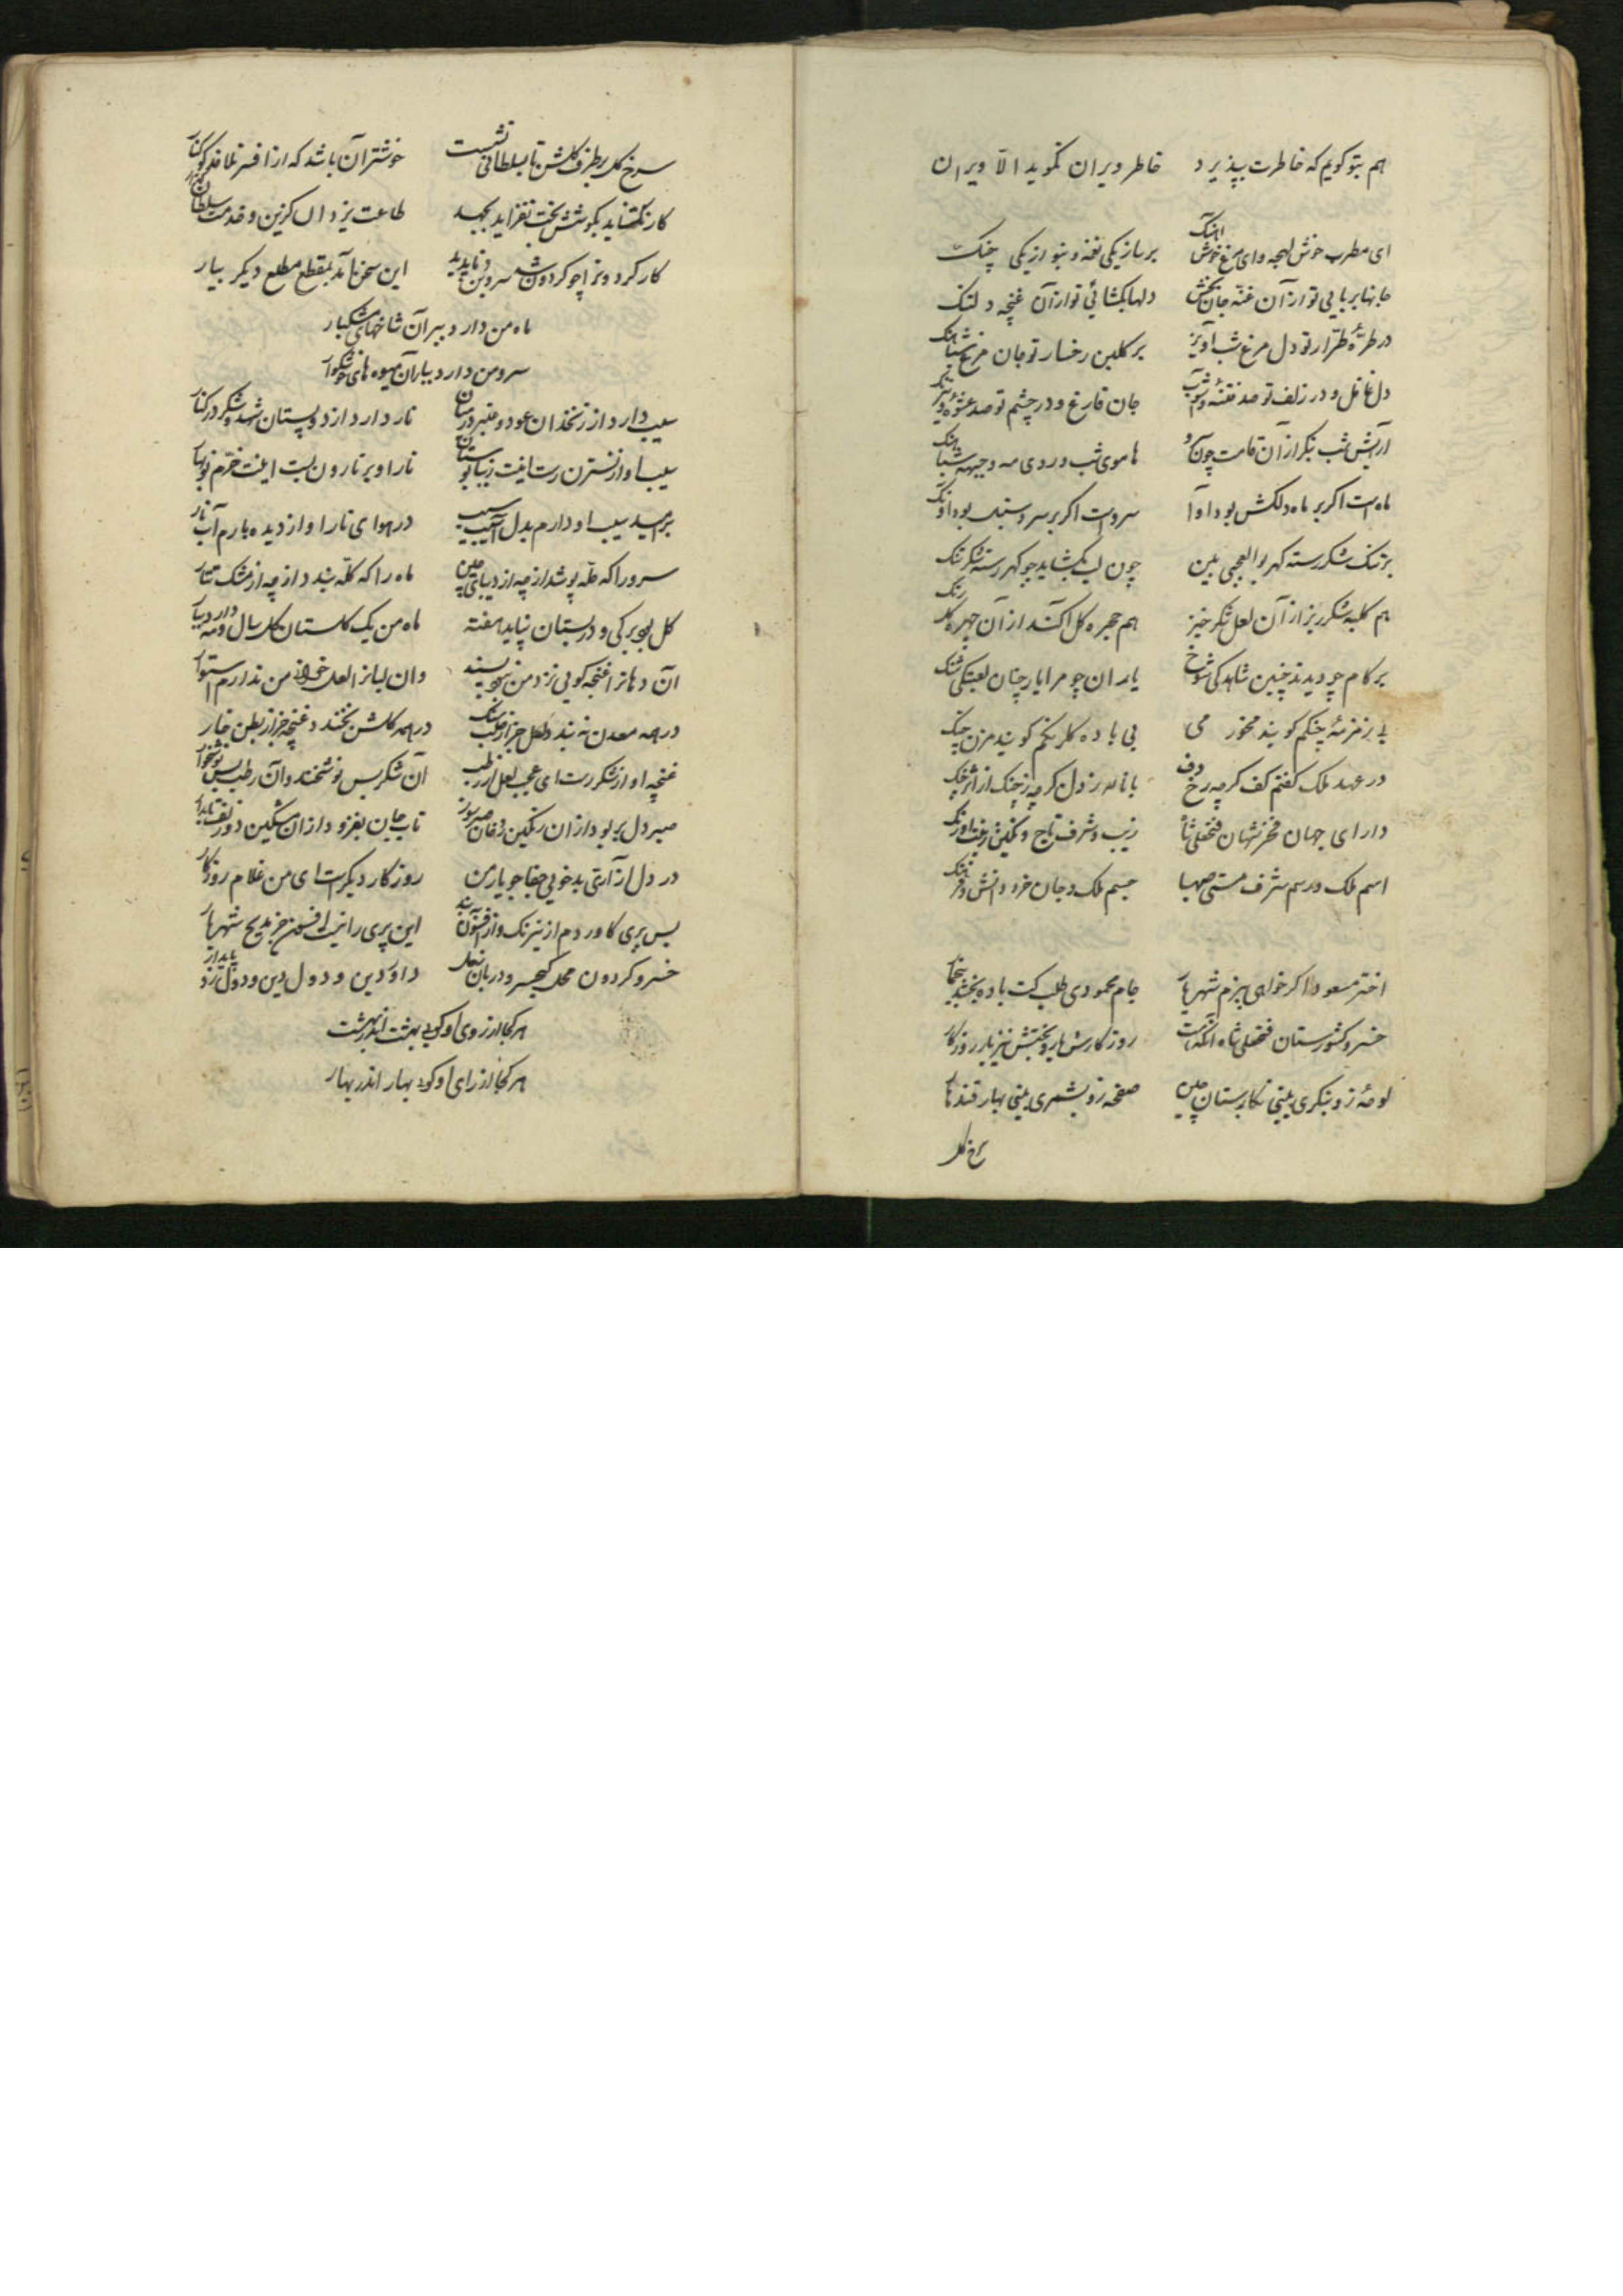 هم بتو کویم که خاطرت بپذیرد خاطر ویران نکوید الا ویران
ای مطرب خوش لهجه وای مرغ خوش آهنک برساز یکی نغمه و بنواز یکی چنک
جانها بربایی تو از آن غنه جان بخش دلها بکشائی تو از آن غنچه دلتنک
در طره طرار تو دل مرغ شب آویز بر کلبن رخسار تو جان مرغ شباهنک
دل غافل و در زلف تو صد فتنه و آشوب جان فارغ و در چشم تو صد عشوه و نیرنک
آرایش شب بنکر از آن قامت چون
ماهست اکر بر ماه دلکش بود آوا سروست اکر بر سرو سنبل بود آونک
بر تنک شکر رسته کهر بوالعجبی بین چون لب بکشاید چو کهر رسته شکر تنک
هم کلبه شکر ریز از آن لعل شکر خیز هم حجره کل آکند از آن چهره کلرنک
برکام چو دیدند چنین شاهدکی شوخ یاران چو مرا یار چنان لعبتکی شنک
بی زمزمه چنکم کویند مخور می بی باده کلرنکم کویند مزن چنک
در عهد ملک کفتم کف کرچه دف
دارای جهان فخر شهان فتحعلی شاه زیب و شرف تاج و نکین زینت اورنک
اسم ملک و رسم شرف مستی صهبا جسم ملک و جان خرد دانش و فرهنک
اختر مسعود را کر خواهی ببزم شهریار جام محمودی طلب کت باده بخشد
خسرو کشورستان فتحعلی شاه آنکه هست روزکارش یار و بختش نیز یار روزکار
لوحه زو بنکری بینی نکارستان چین صفحه زو بشمری بینی بهار قندهار
سرخ کل
سرخ کل بر طرف کلشن تا بسلطانی نشست خوشتر آن باشد که از افسر
کار نکشاید بکوشش بخت نفزاید بجهد طاعت یزدان کزین و خدمت سلطان
کار کرد و نرا چو کردون سر و بن ناپدید این سخن نامد بمقطع مطلع دیکر بیار
ماه من دارد ببر آن شاخهای مشکبار
سرو من دارد ببار آن میوه های خوشکوار
سیب دارد از زنخدان عود و عنبر در میان نار دارد از دو پستان شهد و شکر در کنار
سیب او از نسترن رست اینت زیبا بوستان نار او بر نارون بست اینت خرم نوبهار
بر امید سیب او دارم بدل آسیب سیب در هوای نار او از دیده بارم آب نار
سرو را که حله پوشد از چه از دیبای چین ماه را که کله بندد از چه از مشک تتار
کل بجو برکی و در بستان نپاید هفته ماه من یک کلستان کل سال و مه دارد ببار
آن دهانرا غنچه کویی نزد من نبود پسند وان لبانرا لعل خوانی من ندارم استوار
در همه معدن نه بندد لعل جز از صلب سنک در همه کلشن نخندد غنچه جز از بطن خار
غنچه او از شکر رست ای عجب لعل از رطب آن شکر بس نوشخند و آن رطب بس نوشخوار
صبر دل بربود از آن رنکین دهان صبر سوز تاب جان بفزود از آن مشکین دو زلف تابدار
در دل ار آرتی بدخویی جفا جو یار من روزکار دیکرست ای من غلام روزکار
بس پری کاوردم از نیرنک و از افسون ببند این پری را نیست افسون جز بمدیح شهریار
خسرو کردون محل کیخسرو دربان نعل داور دین و دول دین و دول زو پایدار
هر کجا از روی او کویی بهشت اندر بهشت
هر کجا از رای او کویی بهار اندر بهار